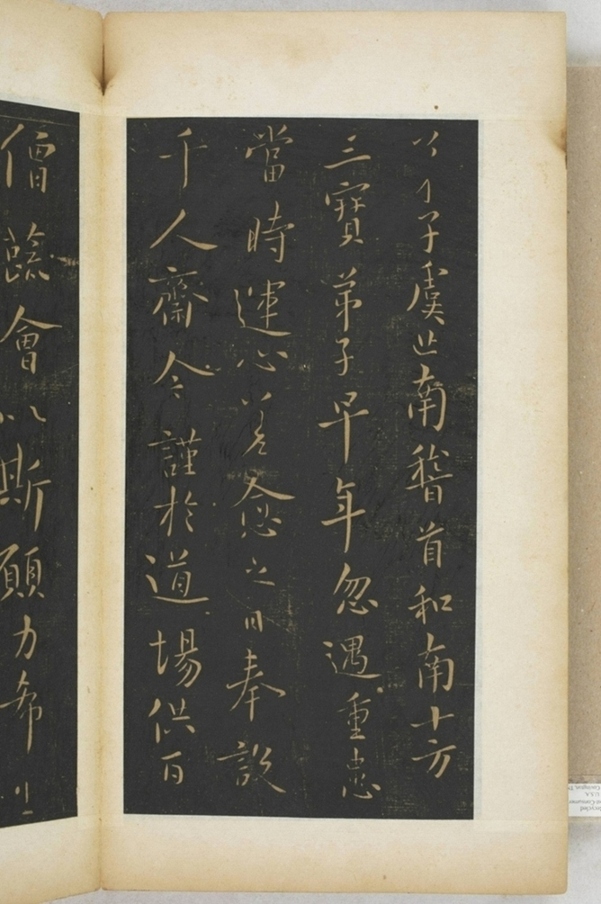 弟子虞世南稽首和南十方
三寶弟子早年忽遇重患
當時運心差愈之日奉設
千人齋今謹於道場供百
僧蔬會以斯願力希生